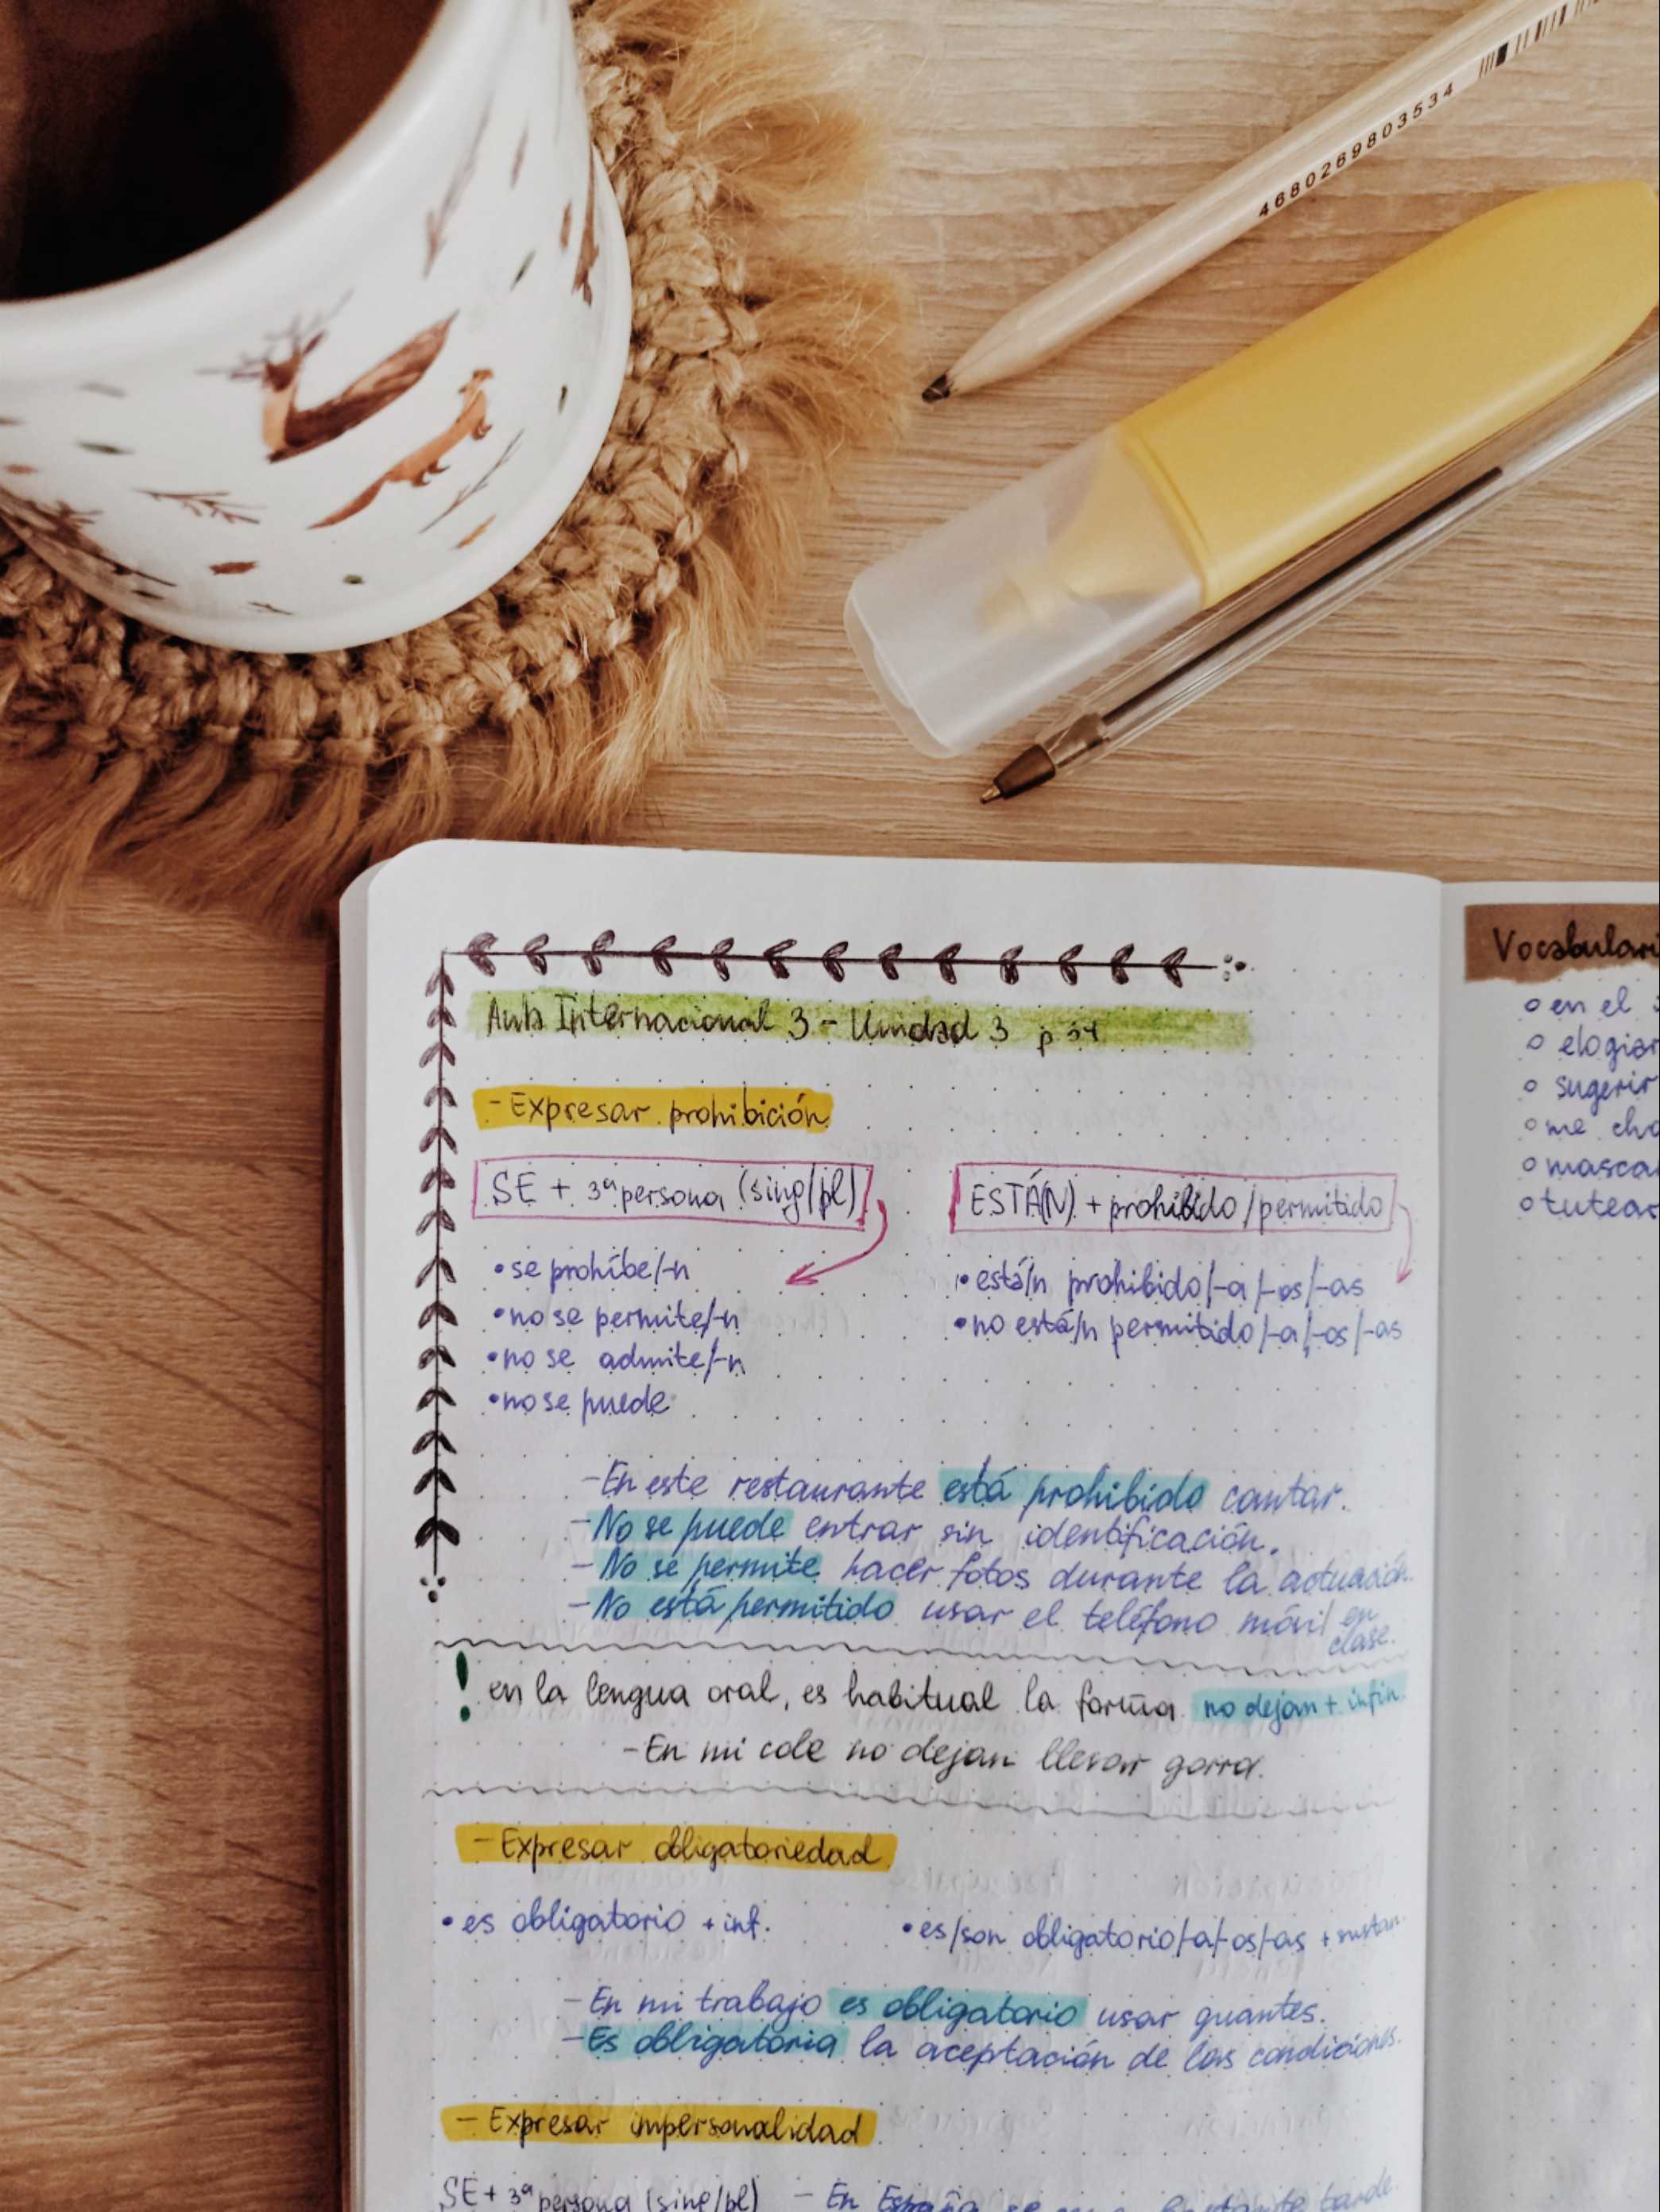 4680269803534
Aula Internacional 3 - Unidad 3 p 34
- Expresar prohibición
SE + 3ª persona (sing/pl)
• se prohíbe/-n
• no se permite/-n
• no se admite/-n
• no se puede
ESTÁ(N) + prohibido/permitido
• está/n prohibido/-a/-os/-as
• no está/n permitido/-a/-os/-as
- En este restaurante está prohibido cantar.
- No se puede entrar sin identificación.
- No se permite hacer fotos durante la actuación.
- No está permitido usar el teléfono móvil en
clase.
! en la lengua oral, es habitual la forma no dejan + infin.
- En mi cole no dejan llevar gorra.
- Expresar obligatoriedad
• es obligatorio + inf.
• es/son obligatorio/-a/-os/-as + sustan.
- En mi trabajo es obligatorio usar guantes.
- Es obligatoria la aceptación de las condiciones.
- Expresar impersonalidad
SE + 3ª persona (sing/pl) - En España se tarde.
Vocabulari
o en el
o elogiar
o sugerir
o me
o masca
o tutear